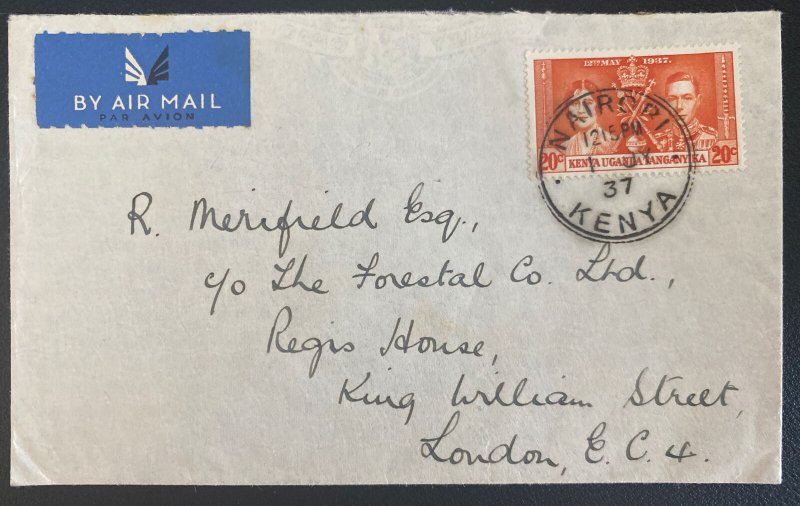 BY AIR MAIL
PAR AVION
12TH MAY 1937.
20c 20c
KENYA UGANDA TANGANYIKA
NAIROBI
12 15 PM
37
KENYA
R. Merifield Esq.,
c/o The Forestal Co. Ltd.,
Regis House,
King William Street,
London, E.C.4.